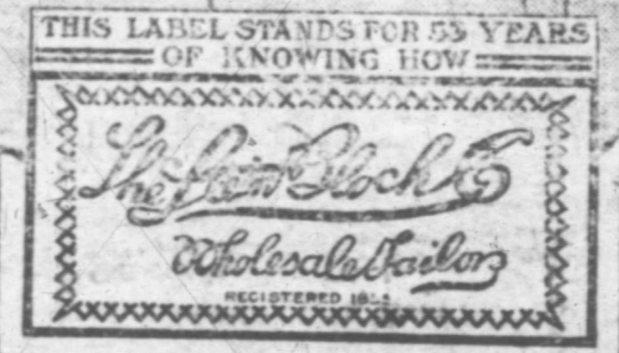 THIS LABEL STANDS FOR 53 YEARS
OF KNOWING HOW
The Stein Bloch Co
Wholesale Tailors
REGISTERED